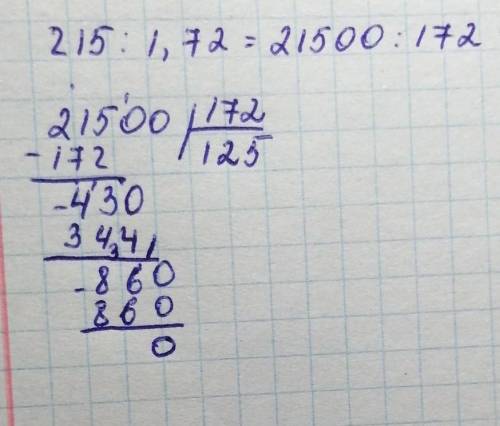 215 : 1,72 = 21500 : 172
21500 | 172
-172 | 125
-430
344
-860
860
0